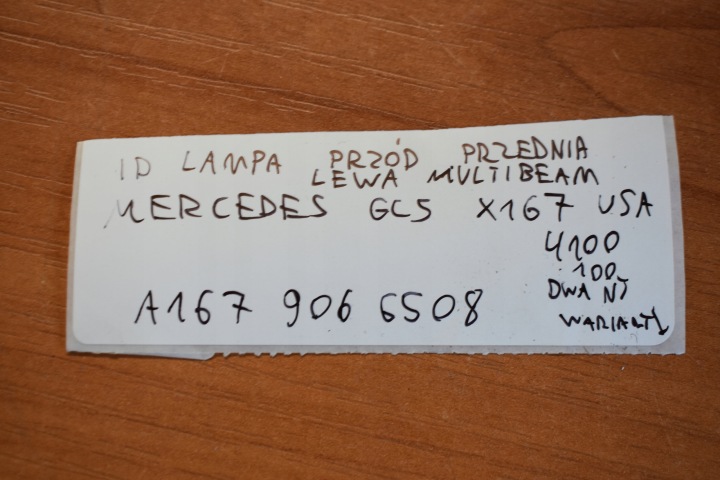 ID LAMPA PRZÓD PRZEDNIA
LEWA MULTIBEAM
MERCEDES GLS X167 USA
4100
100
DWA NJ
WARIATY
A167 906 6508